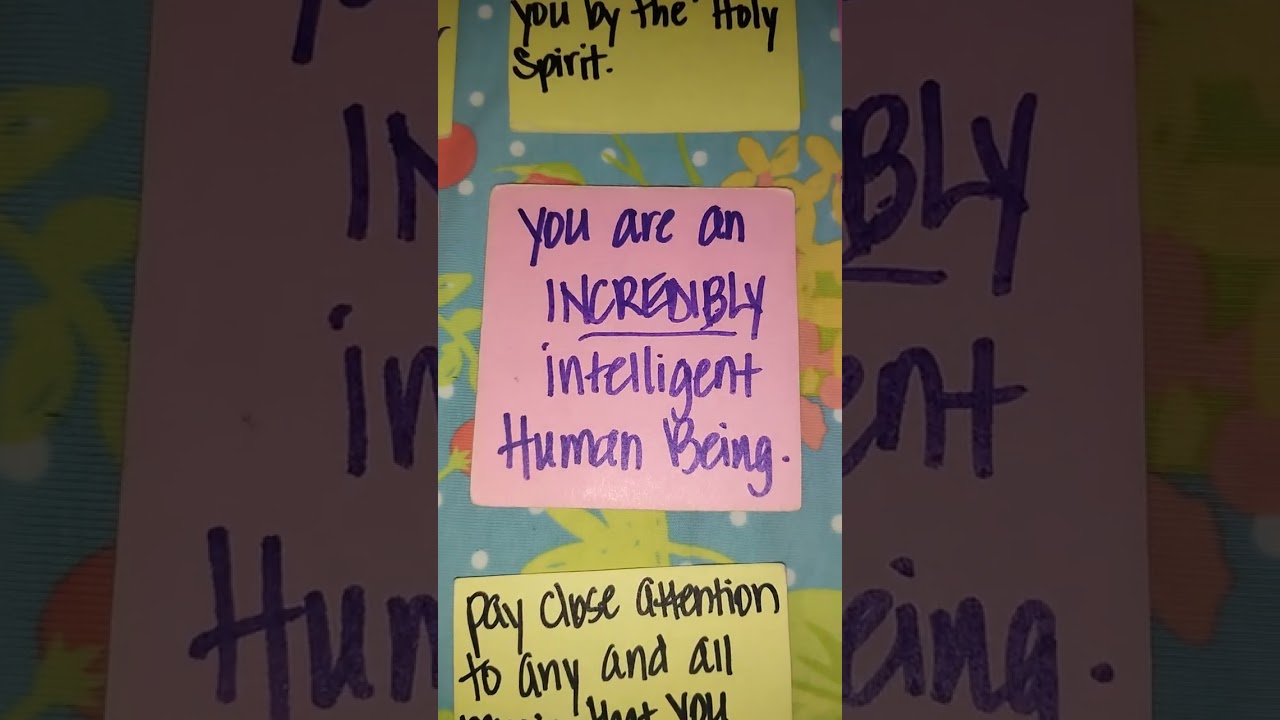 you by the Holy
Spirit.
you are an
INCREDIBLY
intelligent
Human Being.
pay close attention
to any and all
that you